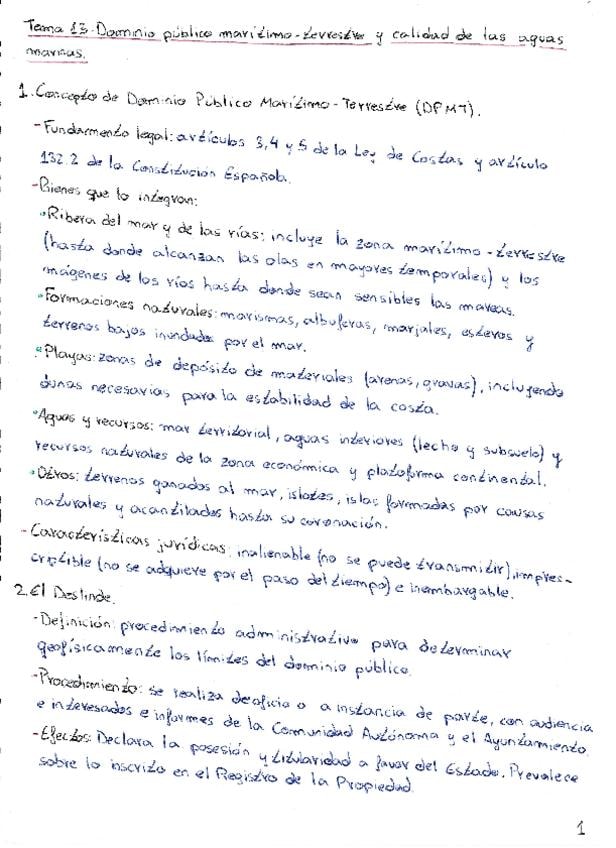 Tema 13. Dominio público marítimo-terrestre y calidad de las aguas
marinas.
1. Concepto de Dominio Público Marítimo-Terrestre (DPMT).
-Fundamento legal: artículos 3,4 y 5 de la Ley de Costas y artículo
132.2 de la Constitución Española.
-Bienes que lo integran:
•Ribera del mar y de las rías: incluye la zona marítimo-terrestre
(hasta donde alcanzan las olas en mayores temporales) y los
márgenes de los ríos hasta donde sean sensibles las mareas.
•Formaciones naturales: marismas, albuferas, marjales, esteros y
terrenos bajos inundados por el mar.
•Playas: zonas de depósito de materiales (arenas, gravas), incluyendo
dunas necesarias para la estabilidad de la costa.
•Aguas y recursos: mar territorial, aguas interiores (lecho y subsuelo) y
recursos naturales de la zona económica y plataforma continental.
•Otros: terrenos ganados al mar, islotes, islas formadas por causas
naturales y acantilados hasta su coronación.
-Características jurídicas: inalienable (no se puede transmitir), impres-
criptible (no se adquiere por el paso del tiempo) e inembargable.
2. El Deslinde.
-Definición: procedimiento administrativo para determinar
geofísicamente los límites del dominio público.
-Procedimiento: se realiza de oficio o a instancia de parte, con audiencia
e interesados e informes de la Comunidad Autónoma y el Ayuntamiento.
-Efectos: Declara la posesión y titularidad a favor del Estado. Prevalece
sobre lo inscrito en el Registro de la Propiedad.
1